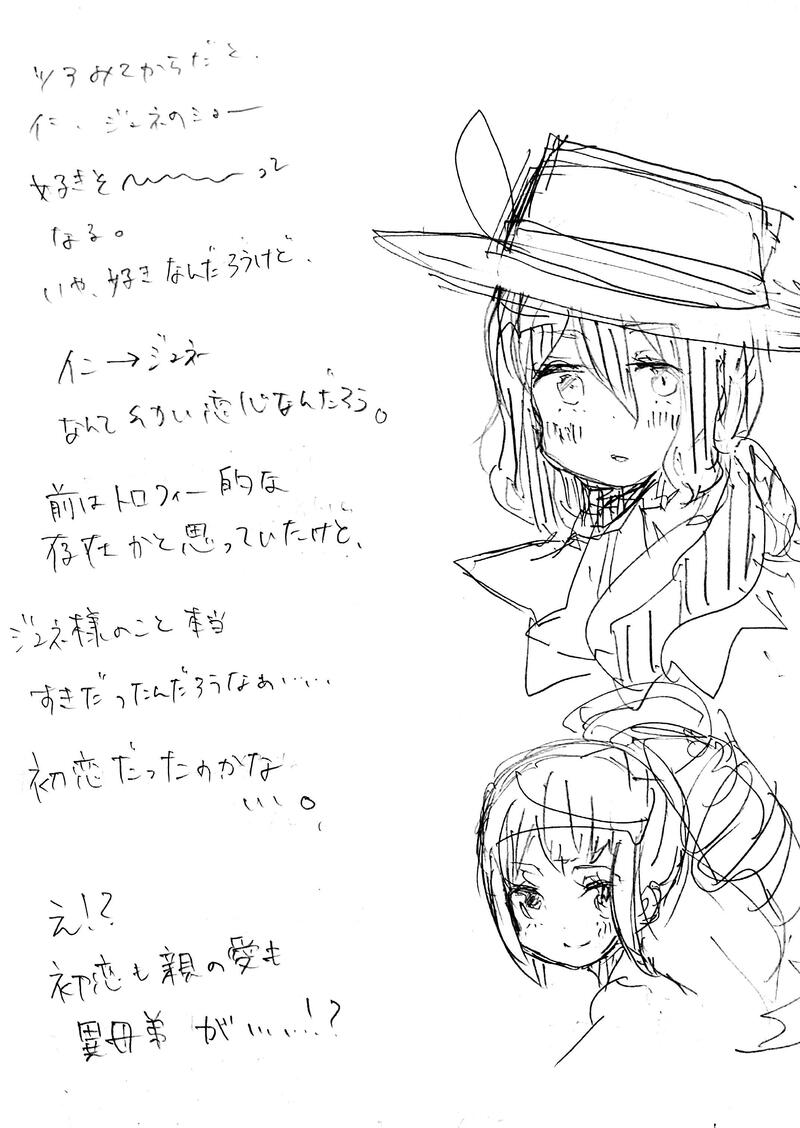 ツラみてからだと、
イニ、ジュネのシュー
好きそ〜〜〜って
なる。
いや、好きなんだろうけど、
イニ→ジュネ
なんて 恋心なんだろう。
前はトロフィー的な
存在かと思っていたけど、
ジュネ様のこと本当
すきだったんだろうなぁ……
初恋だったのかな
…。
え!?
初恋も親の愛も
異母弟が…!?